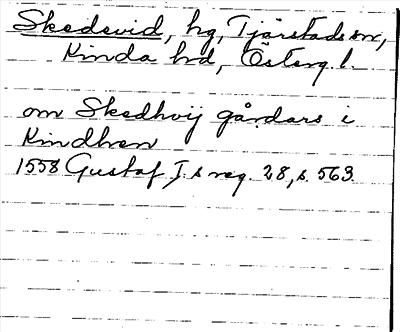 Skedevid, hg, Tjärstads sn,
Kinda hd, Österg. l.
om Skedhvij gårdars i
Kindhren
1558 Gustaf I:s reg. 28, s. 563